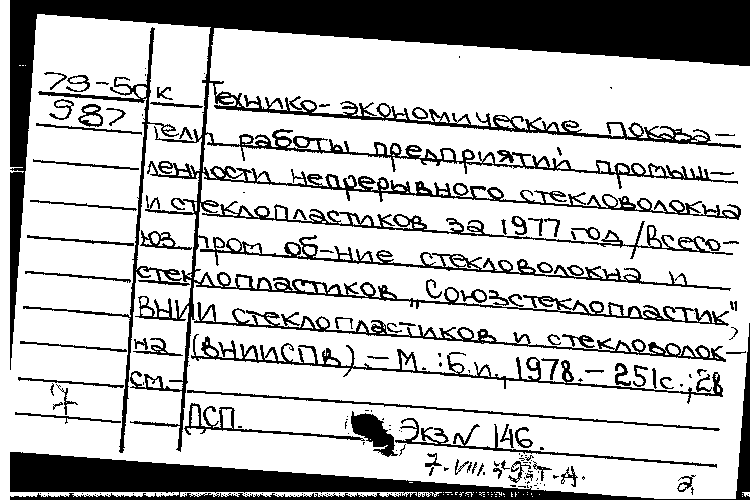 79-50к Технико-экономические показа-
987 тели работы предприятий промыш-
ленности непрерывного стекловолокна
и стеклопластиков за 1977 год / Всесо-
юз пром об-ние стекловолокна и
стеклопластиков „Союзстеклопластик",
ВНИИ стеклопластиков и стекловолок-
на (ВНИИСПВ). – М. : Б.и., 1978. – 251с.; 28
см. –
7 ДСП. Экз N 146.
7.VIII.79 Т.А.
2